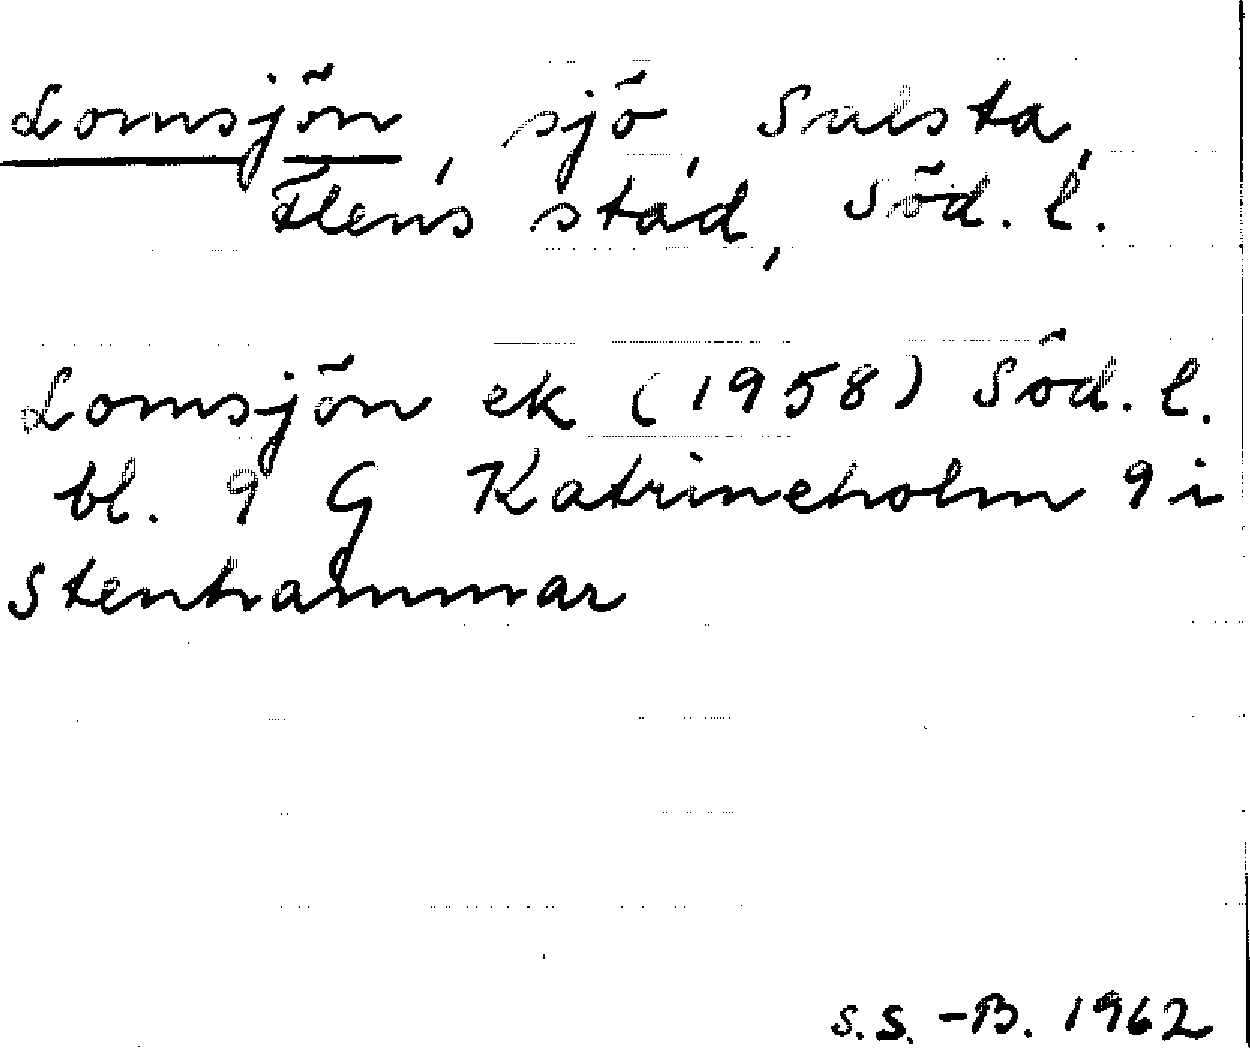 Lomsjön, sjö, Salsta,
Flens stad, Söd. l.
Lomsjön ek (1958) Söd. l.
bl. 9 G Katrineholm 9 i
Stenhammar
S.S. -B. 1962